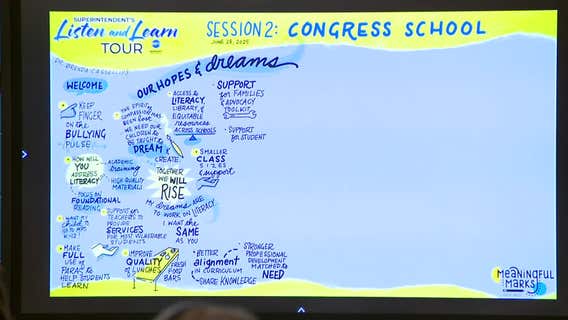 SUPERINTENDENT'S
Listen and Learn
TOUR
SESSION 2: CONGRESS SCHOOL
JUNE 28, 2025
DR. BRENDA CASSELLIUS
WELCOME
OUR HOPES & dreams
KEEP
FINGER
ON the
BULLYING
PULSE
THE SPIRIT of
COMPASSION HAS
BEEN LOST
WE NEED OUR
CHILDREN to
BE TAUGHT to
DREAM &
CREATE.
ACCESS to
LITERACY,
LIBRARY, &
EQUITABLE
resources
ACROSS SCHOOLS
SUPPORT
for FAMILIES
& ADVOCACY
TOOLKIT
SUPPORT
for STUDENT
HOW WILL
YOU
ADDRESS
LITERACY
ACADEMIC
training
HIGH QUALITY
MATERIALS
FOCUS ON
FOUNDATIONAL
READING
TOGETHER
WE WILL
RISE
SMALLER
CLASS
SIZES
& support
MY dreams ARE
TO WORK ON LITERACY
I WANT the
SAME
AS YOU
I WANT MY
child to
GO to MPS
SUPPORT for
TEACHERS to
PROVIDE
SERVICES
FOR MOST VULNERABLE
STUDENTS
MAKE
FULL
USE of
PARAS to
HELP STUDENTS
LEARN
IMPROVE
QUALITY
of LUNCHES
FRESH
FOOD
BARS
BETTER
alignment
IN CURRICULUM
SHARE KNOWLEDGE
STRONGER
PROFESSIONAL
DEVELOPMENT
MATCHED to
NEED
MEANINGFUL
MARKS